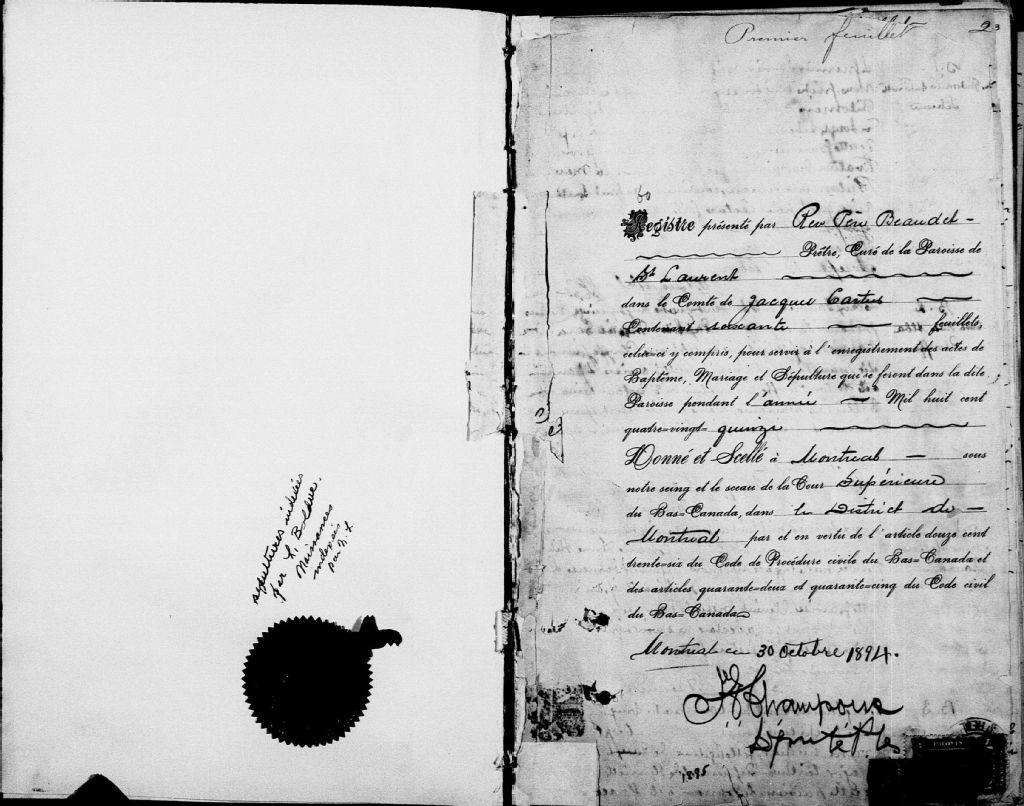 sépultures indexées
par L. Bolduc.
Naissances
indexés
par N. L.
Premier feuillet
23
60
Registre présenté par Rev Père Beaudet -
Prêtre, Curé de la Paroisse de
St Laurent
dans le Comté de Jacques Cartier
Contenant soixante feuillets,
celui-ci y compris, pour servir à l'enregistrement des actes de
Baptême, Mariage et Sépulture qui se feront dans la dite
Paroisse pendant l'année Mil huit cent
quatre-vingt-quinze
Donné et Scellé à Montréal sous
notre seing et le sceau de la Cour Supérieure
du Bas-Canada, dans le District de
Montréal par et en vertu de l'article douze cent
trente-six du Code de Procédure civile du Bas-Canada et
des articles quarante-deux et quarante-cinq du Code civil
du Bas-Canada
Montreal ce 30 Octobre 1894.
Champoux
Député
1895